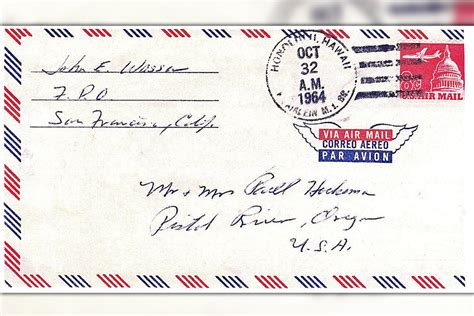 John E. Wasson
F.P.O
San Francisco, Calif.
HONOLULU, HAWAII
OCT
32
A.M.
1964
8¢
US AIR MAIL
VIA AIR MAIL
CORREO AEREO
PAR AVION
Mr & Mrs Hocksma
Pistol River, Oregon
U.S.A.